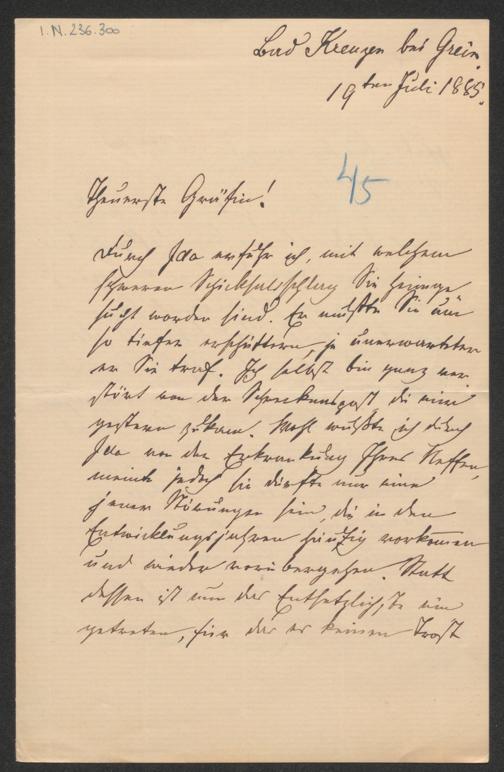 I.N. 236.300
Bad Kreuzen bei Grein.
19ten Juli 1885.
45
Theuerste Gräfin!
Durch Ida erfuhr ich, mit welchem
schweren Schicksalsschlag Sie heimge
sucht worden sind. Er mußte Sie um
so tiefer erschüttern, je unerwarteter
er Sie traf. Ich selbst bin ganz ver
stört von der Schreckenspost die mir
gestern zukam. Wohl wußte ich durch
Ida von der Erkrankung Ihres Neffen,
meinte jedoch sie dürfte nur eine
jener Störungen sein, die in den
Entwicklungsjahren häufig vorkommen
und wieder vorübergehen. Statt
dessen ist nun das Entsetzlichste ein
getreten, für das es keinen Trost